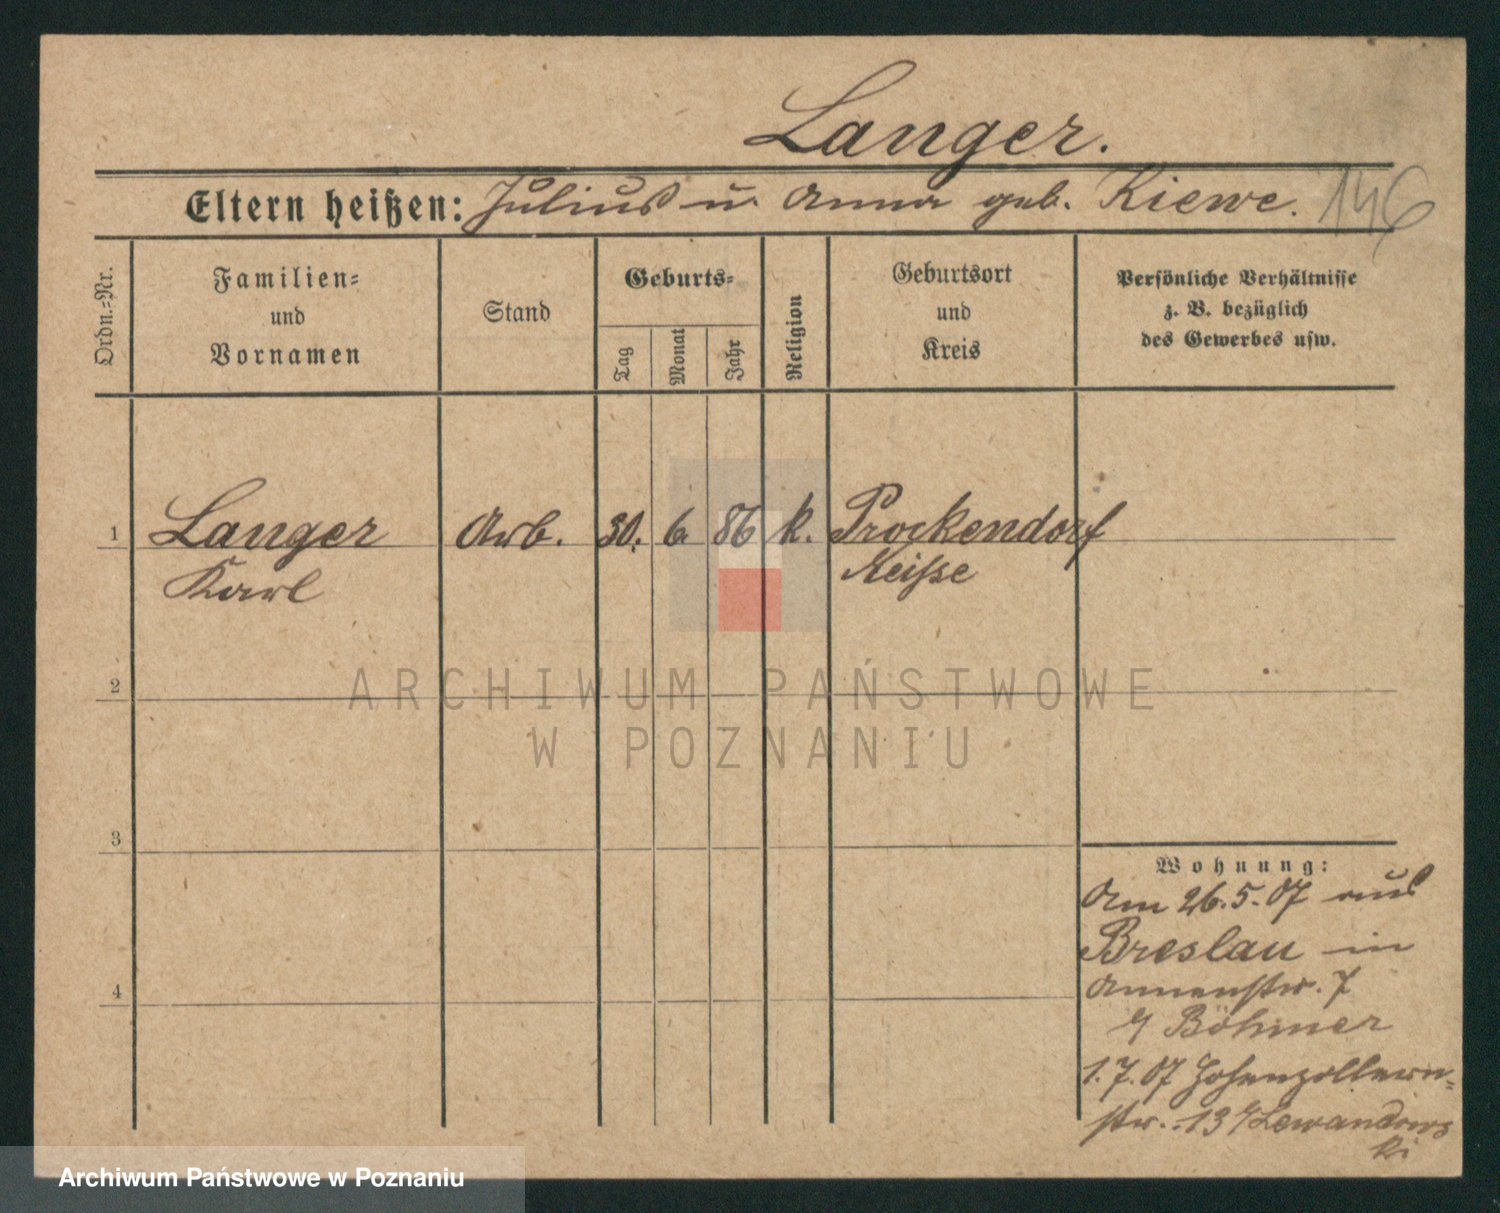 Langer.
Eltern heißen: Julius u. Anna geb. Kiewe. 146
Ordn.-Nr.
Familien-
und
Vornamen
Stand
Geburts-
Tag
Monat
Jahr
Religion
Geburtsort
und
Kreis
Persönliche Verhältnisse
z. B. bezüglich
des Gewerbes usw.
1 Langer Arb. 30. 6. 86 k. Prockendorf
Karl Neisse
2
ARCHIWUM PAŃSTWOWE
W POZNANIU
3
Wohnung:
Am 26.5.07 aus
Breslau in
4 Annenstr. 7
b/ Böhmer
1.7.07 Hohenzollern-
str. 13 b/ Lewandows
ki
Archiwum Państwowe w Poznaniu